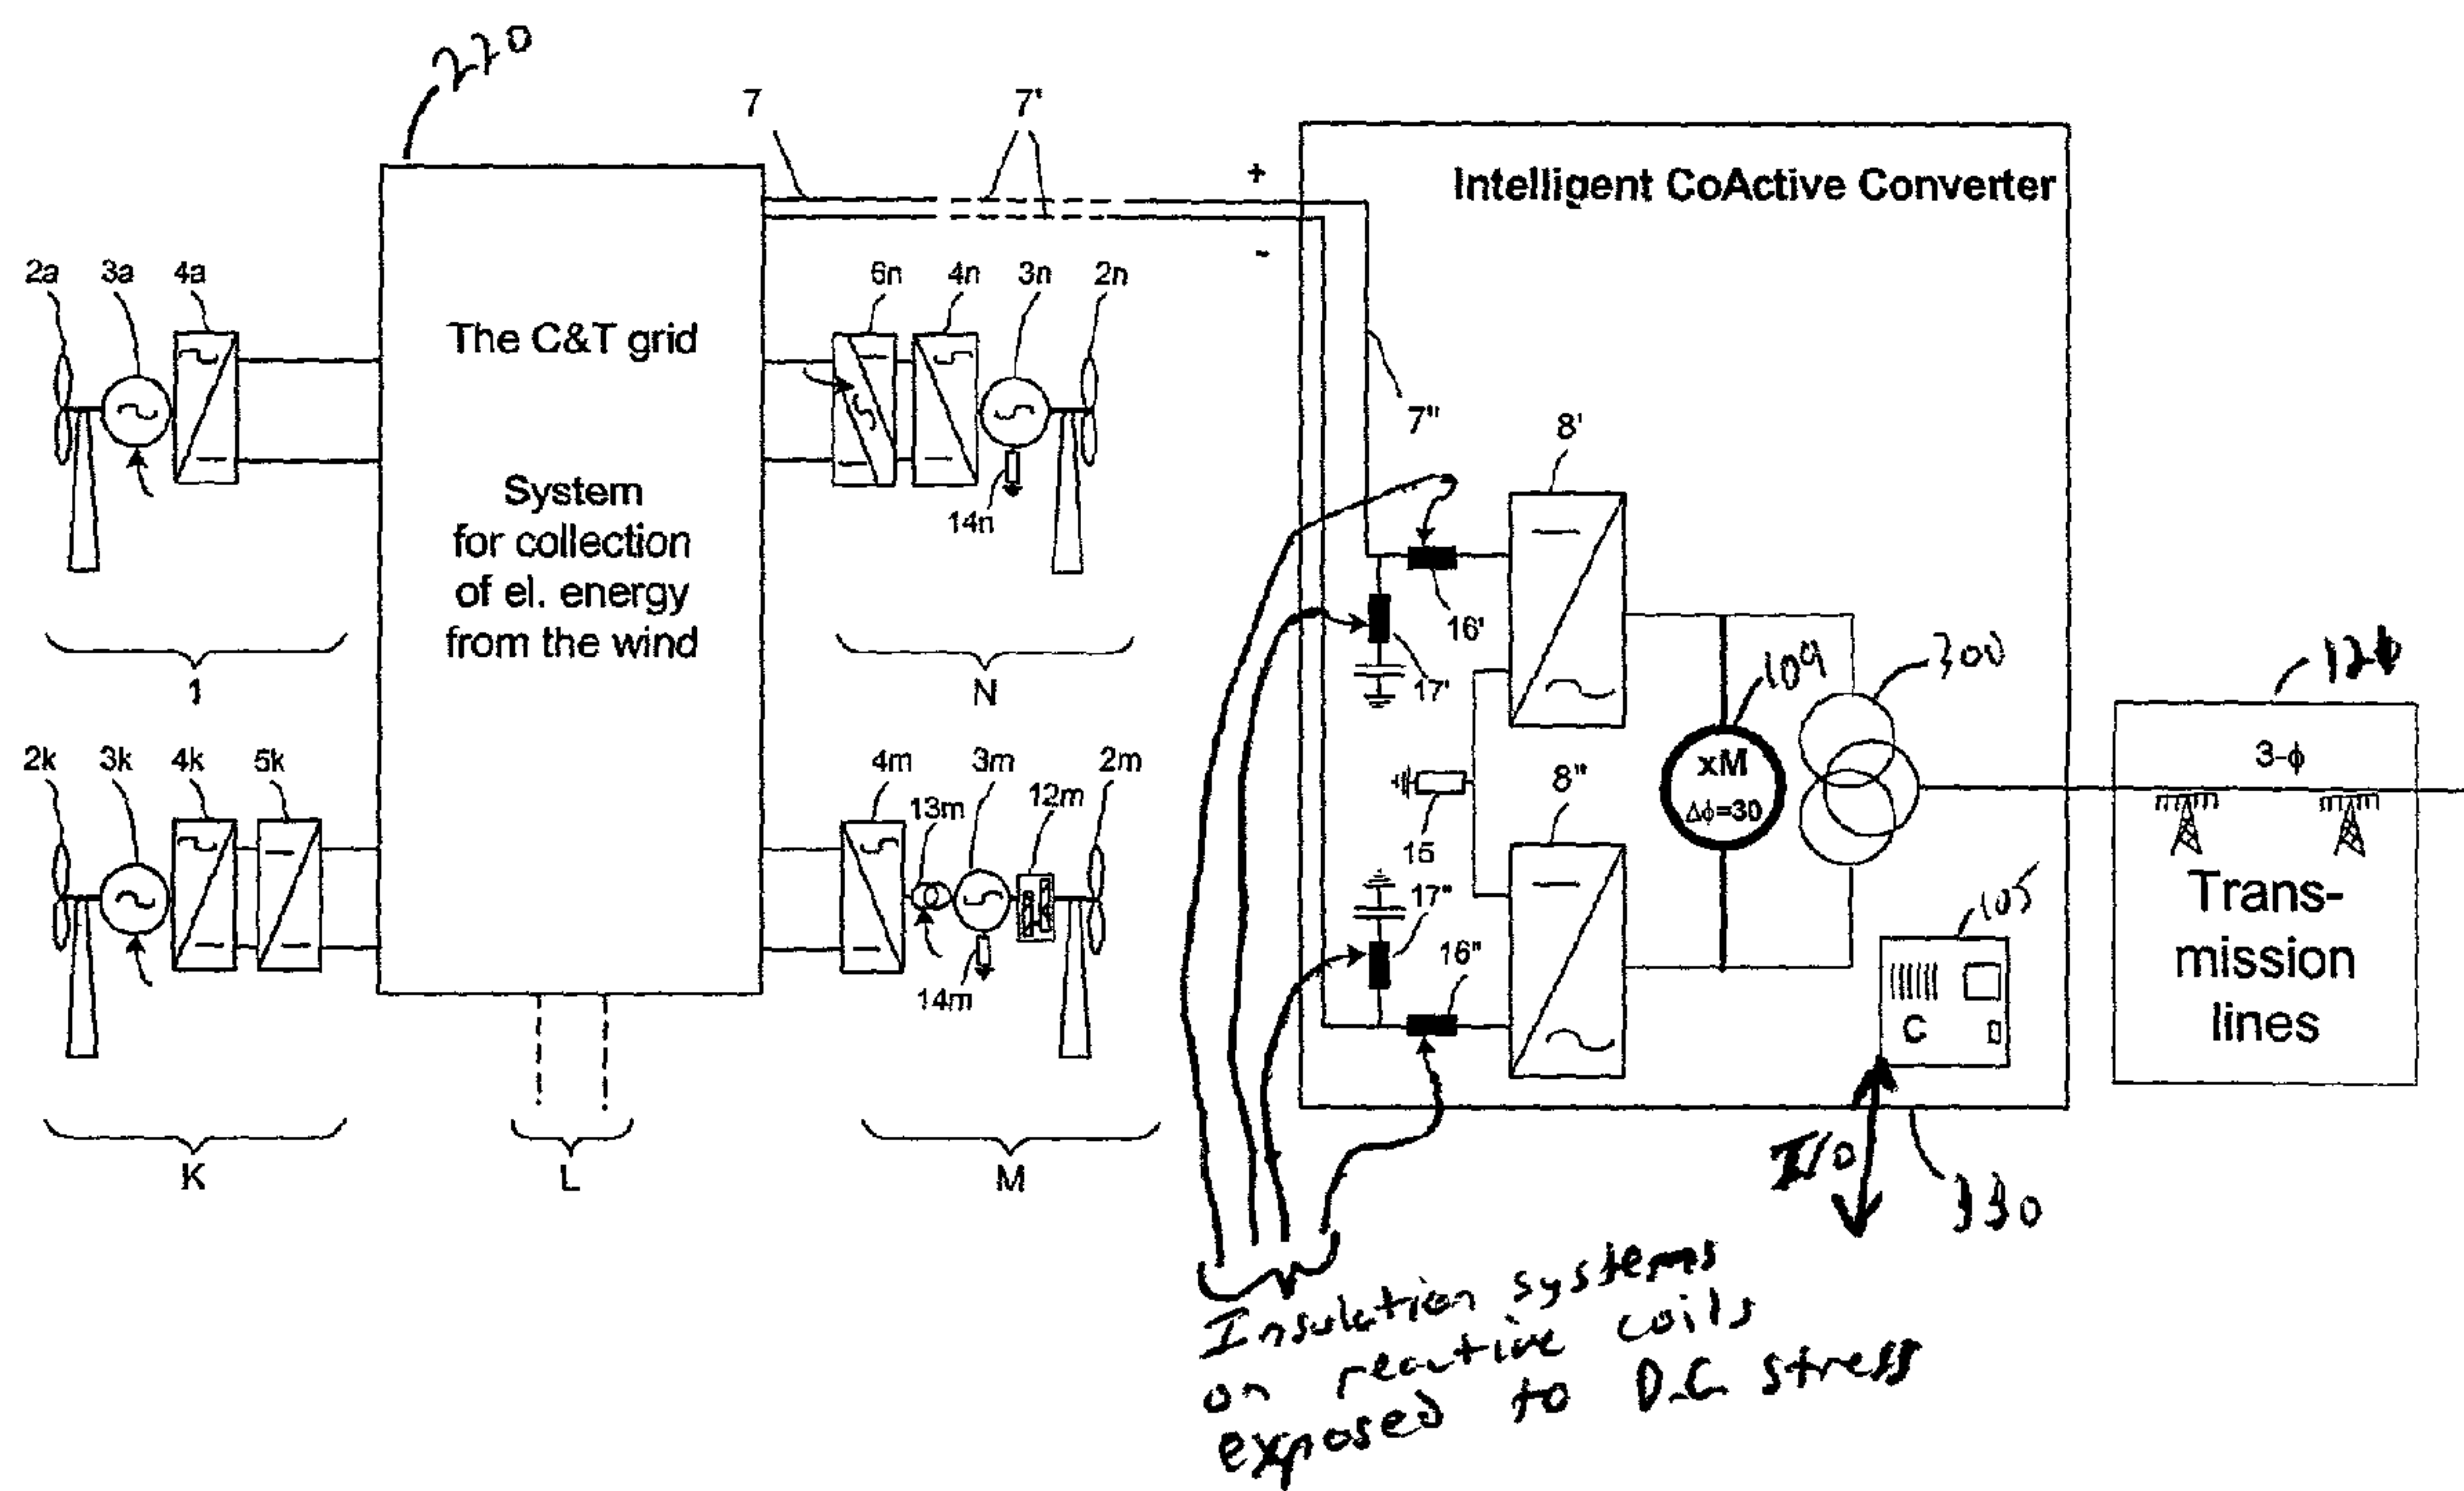 270
7
7'
+
-
Intelligent CoActive Converter
2a
3a
4a
The C&T grid
System
for collection
of el. energy
from the wind
6n
4n
3n
2n
14n
7"
8'
16'
17'
1
N
109
300
3-ϕ
2k
3k
4k
5k
4m
13m
3m
12m
2m
14m
15
8"
xM
Δϕ=30
17"
16"
105
C
Trans-
mission
lines
K
L
M
I/O
330
Insulation systems
on reactive coils
exposed to D.C. stress